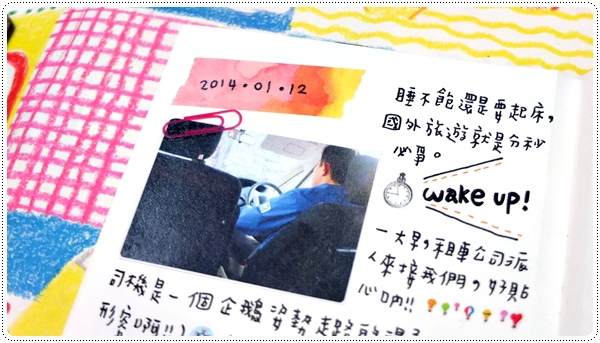 2014.01.12
睡不飽還是要起床,
國外旅遊就是分秒
必爭。
wake up!
一大早,租車公司派
人來接我們,好貼
心吶!!
司機是一個企鵝姿勢走路的漢子
形容啊!!)